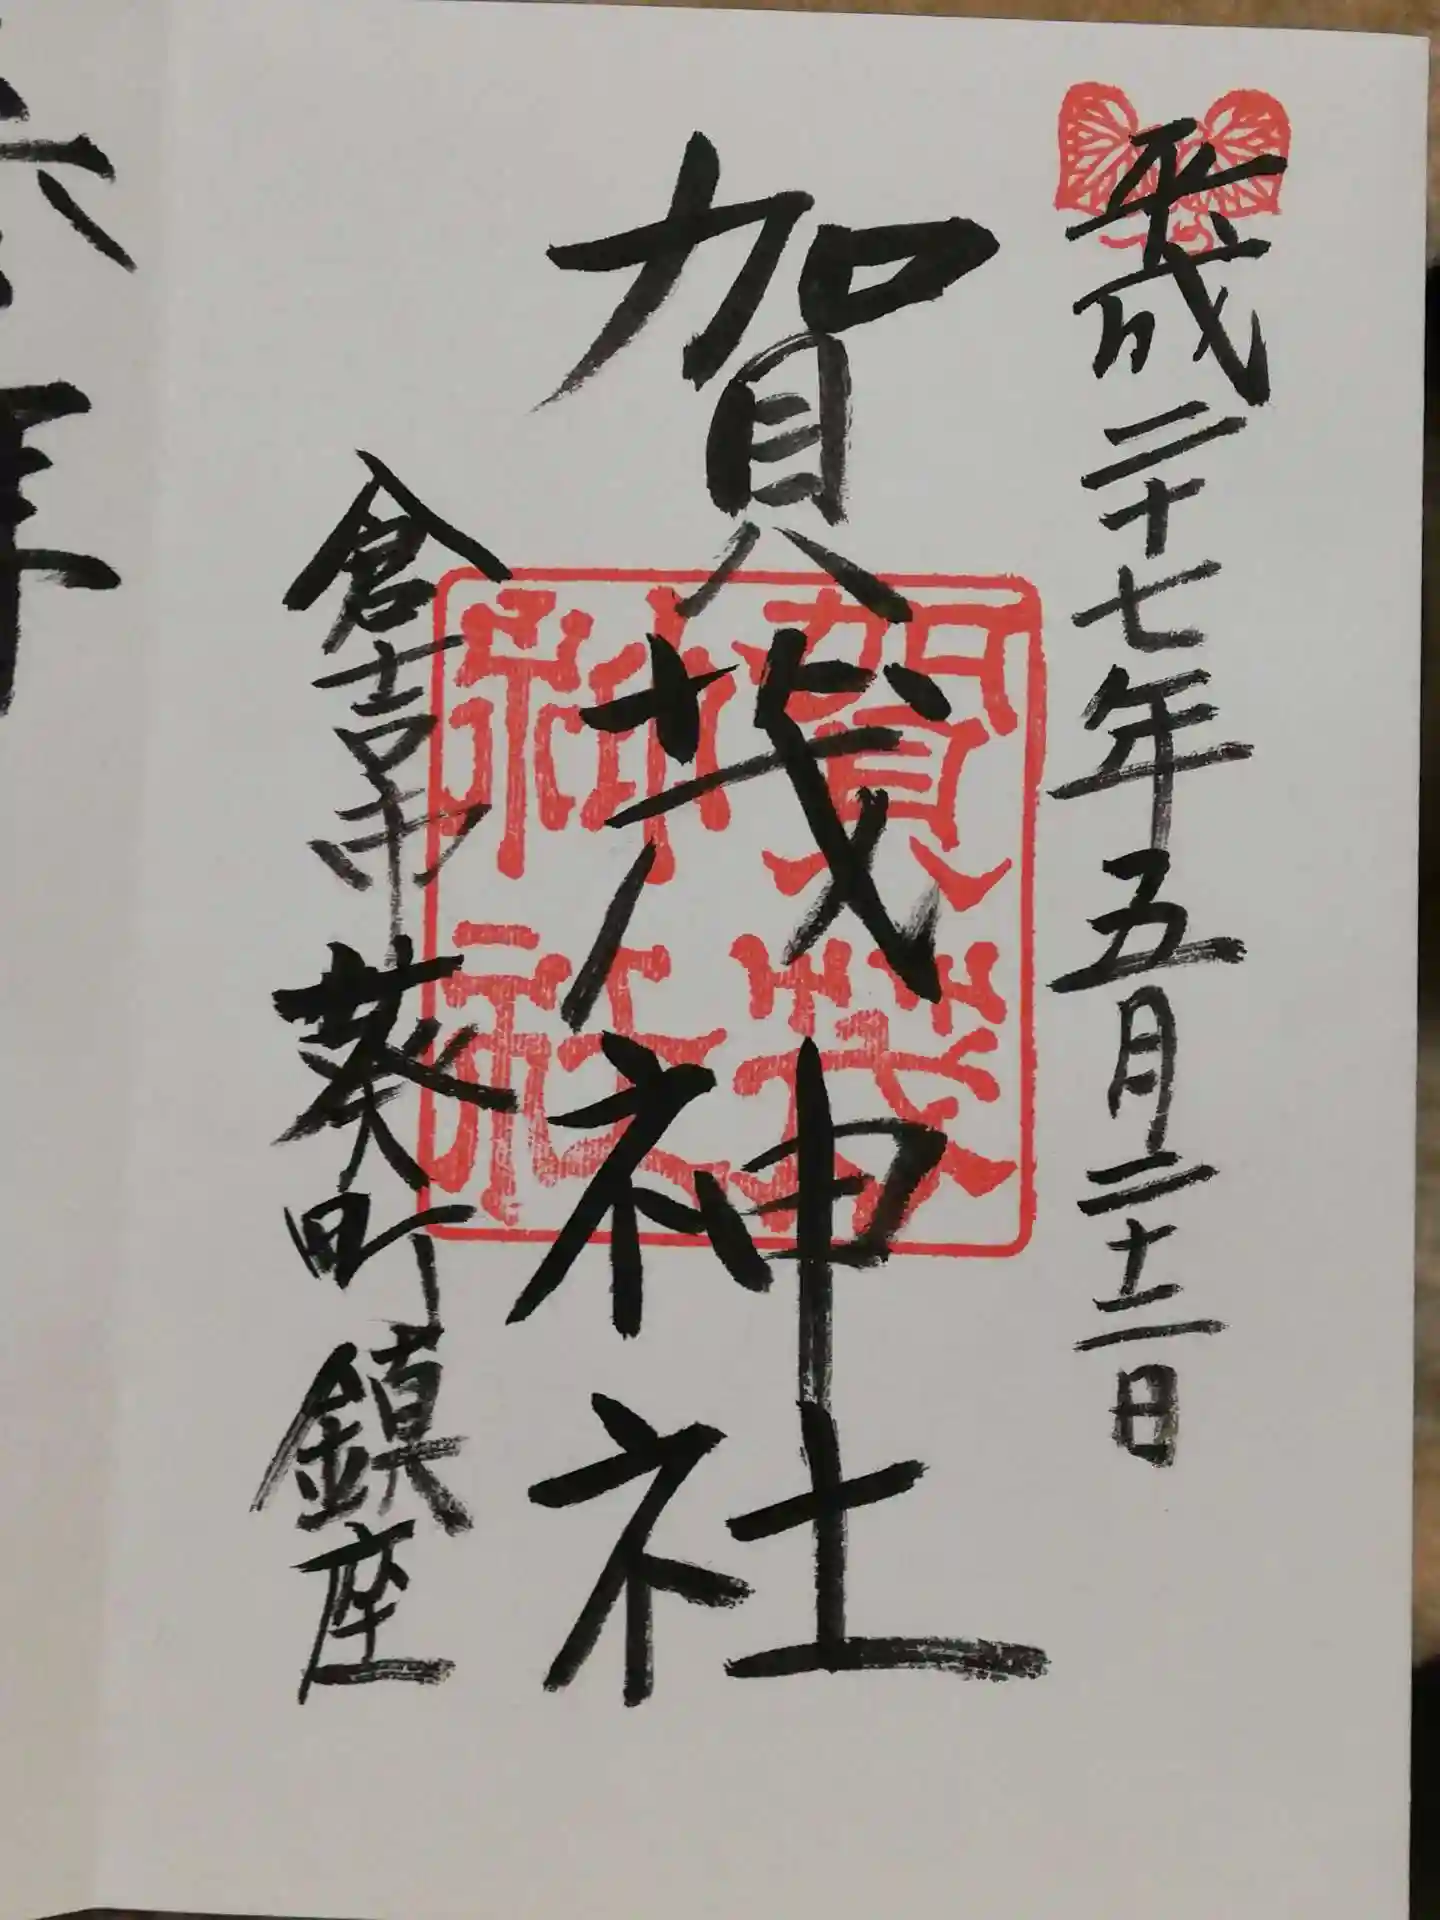 平成二十七年五月二十二日
賀茂神社
賀茂
神社
倉吉市葵町鎮座